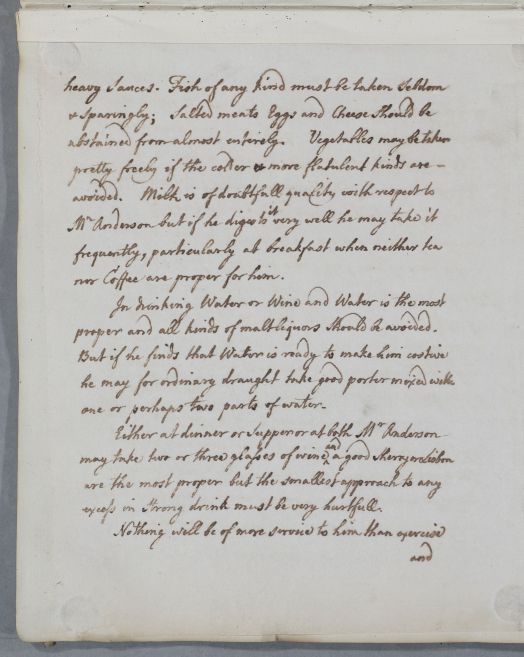 heavy Sauces. Fish of any kind must be taken Seldom
& Sparingly; Salted meats Eggs and Cheese Should be
abstained from almost entirely. Vegetables may be taken
pretty freely if the colder & more flatulent kinds are
avoided. Milk is of doubtfull quality with respect to
Mr Anderson but if he digests it very well he may take it
frequently, particularly at breakfast when neither tea
nor Coffee are proper for him.
In drinking Water or Wine and Water is the most
proper and all kinds of malt liquors Should be avoided.
But if he finds that Water is ready to make him costive
he may for ordinary draught take good porter mixed with
one or perhaps two parts of water.
Either at dinner or Supper or at both Mr Anderson
may take two or three glasses of wine and a good Sherry or Lisbon
are the most proper but the smallest approach to any
excess in Strong drink must be very hurtfull.
Nothing will be of more service to him than exercise
and